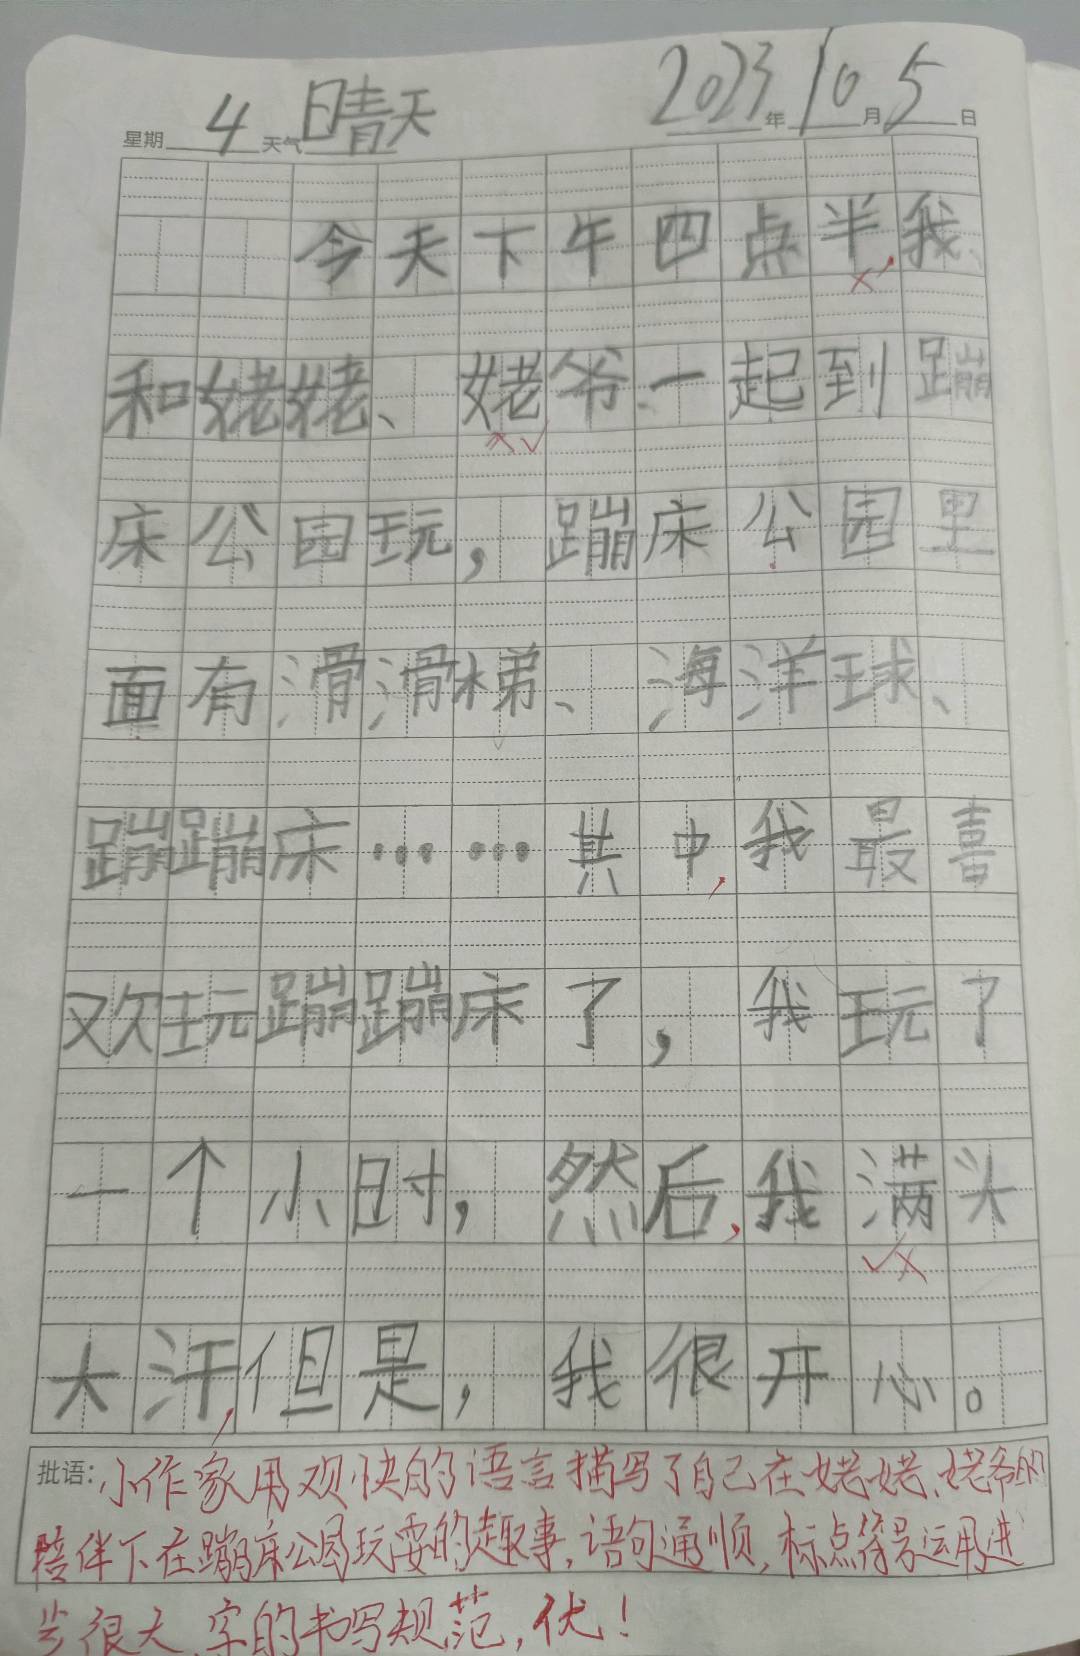 星期 4 天气 晴天 2023 年 10 月 5 日
今天下午四点半，我
和姥姥、姥爷一起到蹦
床公园玩，蹦床公园里
面有滑滑梯、海洋球、
蹦蹦床……其中，我最喜
欢玩蹦蹦床了，我玩了
一个小时，然后，我满头
大汗，但是，我很开心。
批语：小作家用欢快的语言描写了自己在姥姥、姥爷的
陪伴下在蹦床公园玩耍的趣事，语句通顺，标点符号运用进
步很大，字的书写规范，优！